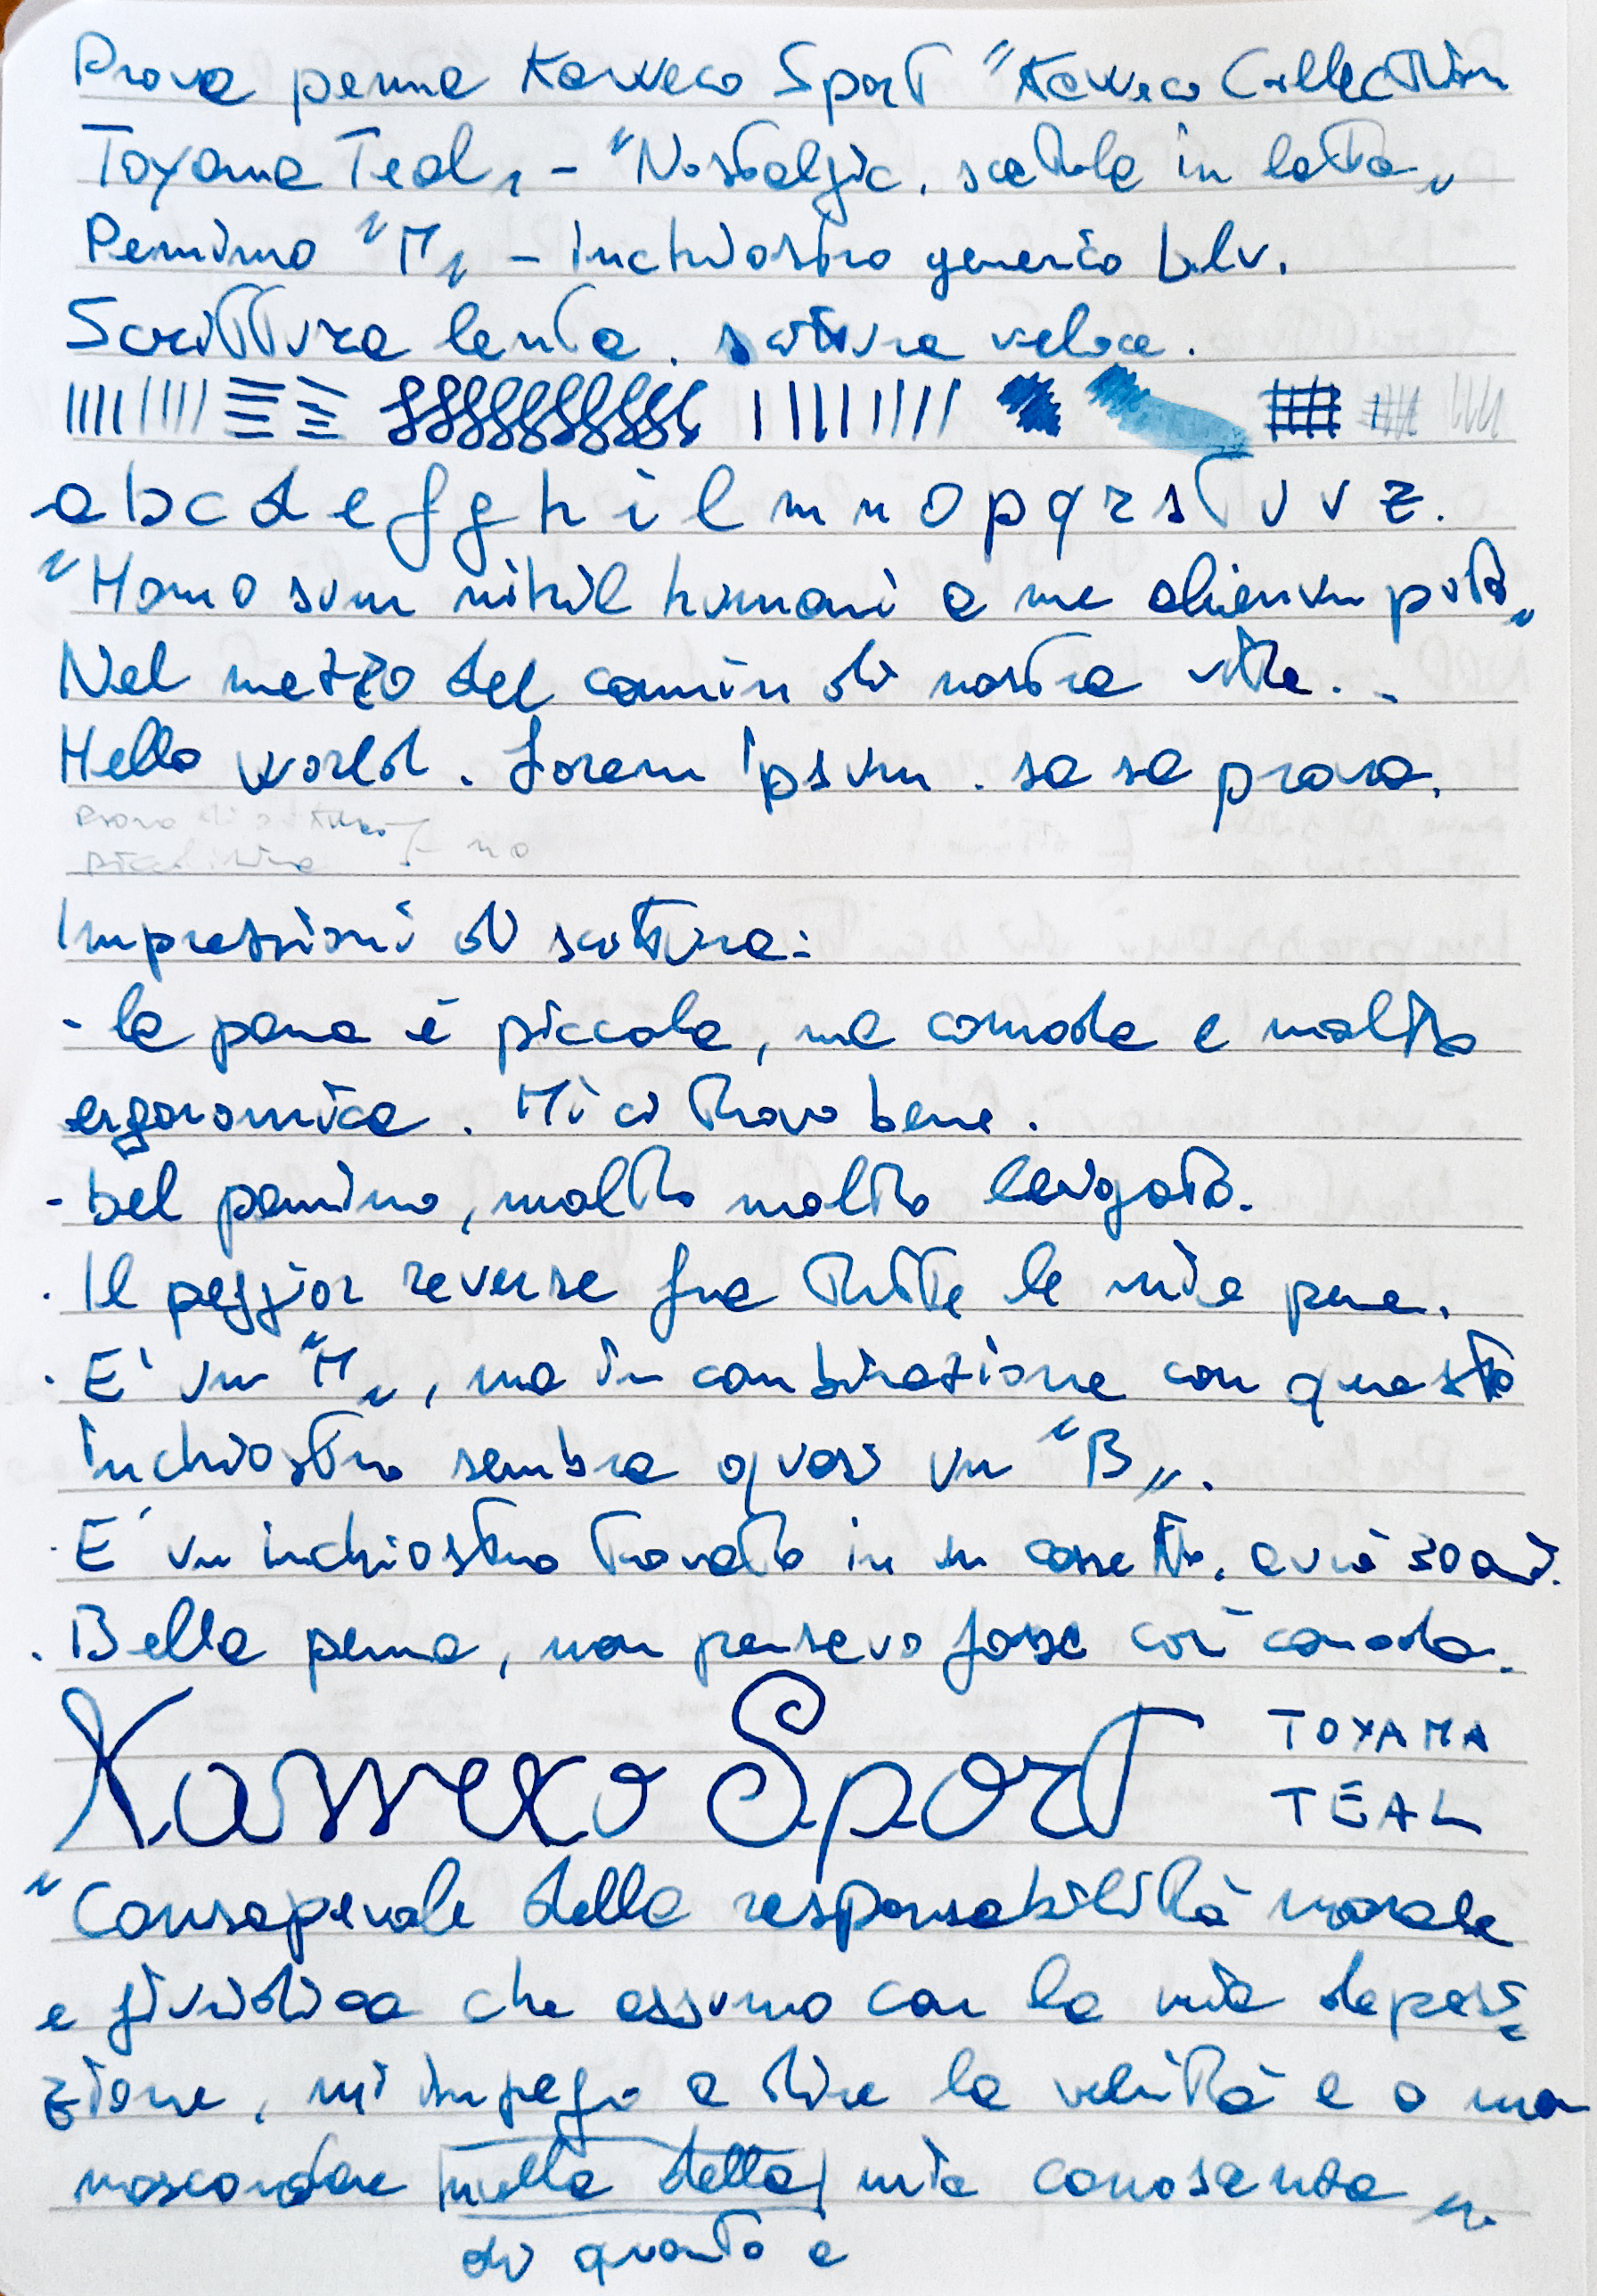 Prova penna Kaweco Sport "Kaweco Collection
Toyama Teal" - "Nostalgic, scatola in latta"
Pennino "M" - Inchiostro generico blu.
Scrittura lenta. scrittura veloce.
a b c d e f g h i l m n o p q r s t u v z.
"Homo sum nihil humani a me alienum puto"
Nel mezzo del cammin di nostra vita...
Hello world. Lorem Ipsum. sa sa prova.
Prova di scrittura
piccolissima - no
Impressioni di scrittura:
- la penna è piccola, ma comoda e molto
ergonomica. Mi ci trovo bene.
- bel pennino, molto molto levigato.
. Il peggior reverse fra tutte le mie penne.
. E' un "M", ma in combinazione con questo
inchiostro sembra quasi un "B".
. E' un inchiostro trovato in un cassetto, avrà 30 anni.
. Bella penna, non pensavo fosse così comoda.
Kaweco Sport TOYAMA
TEAL
"Consapevole della responsabilità morale
e giuridica che assumo con la mia deposi=
zione, mi impegno a dire la verità e a non
nascondere nulla della mia conoscenza".
di quanto è